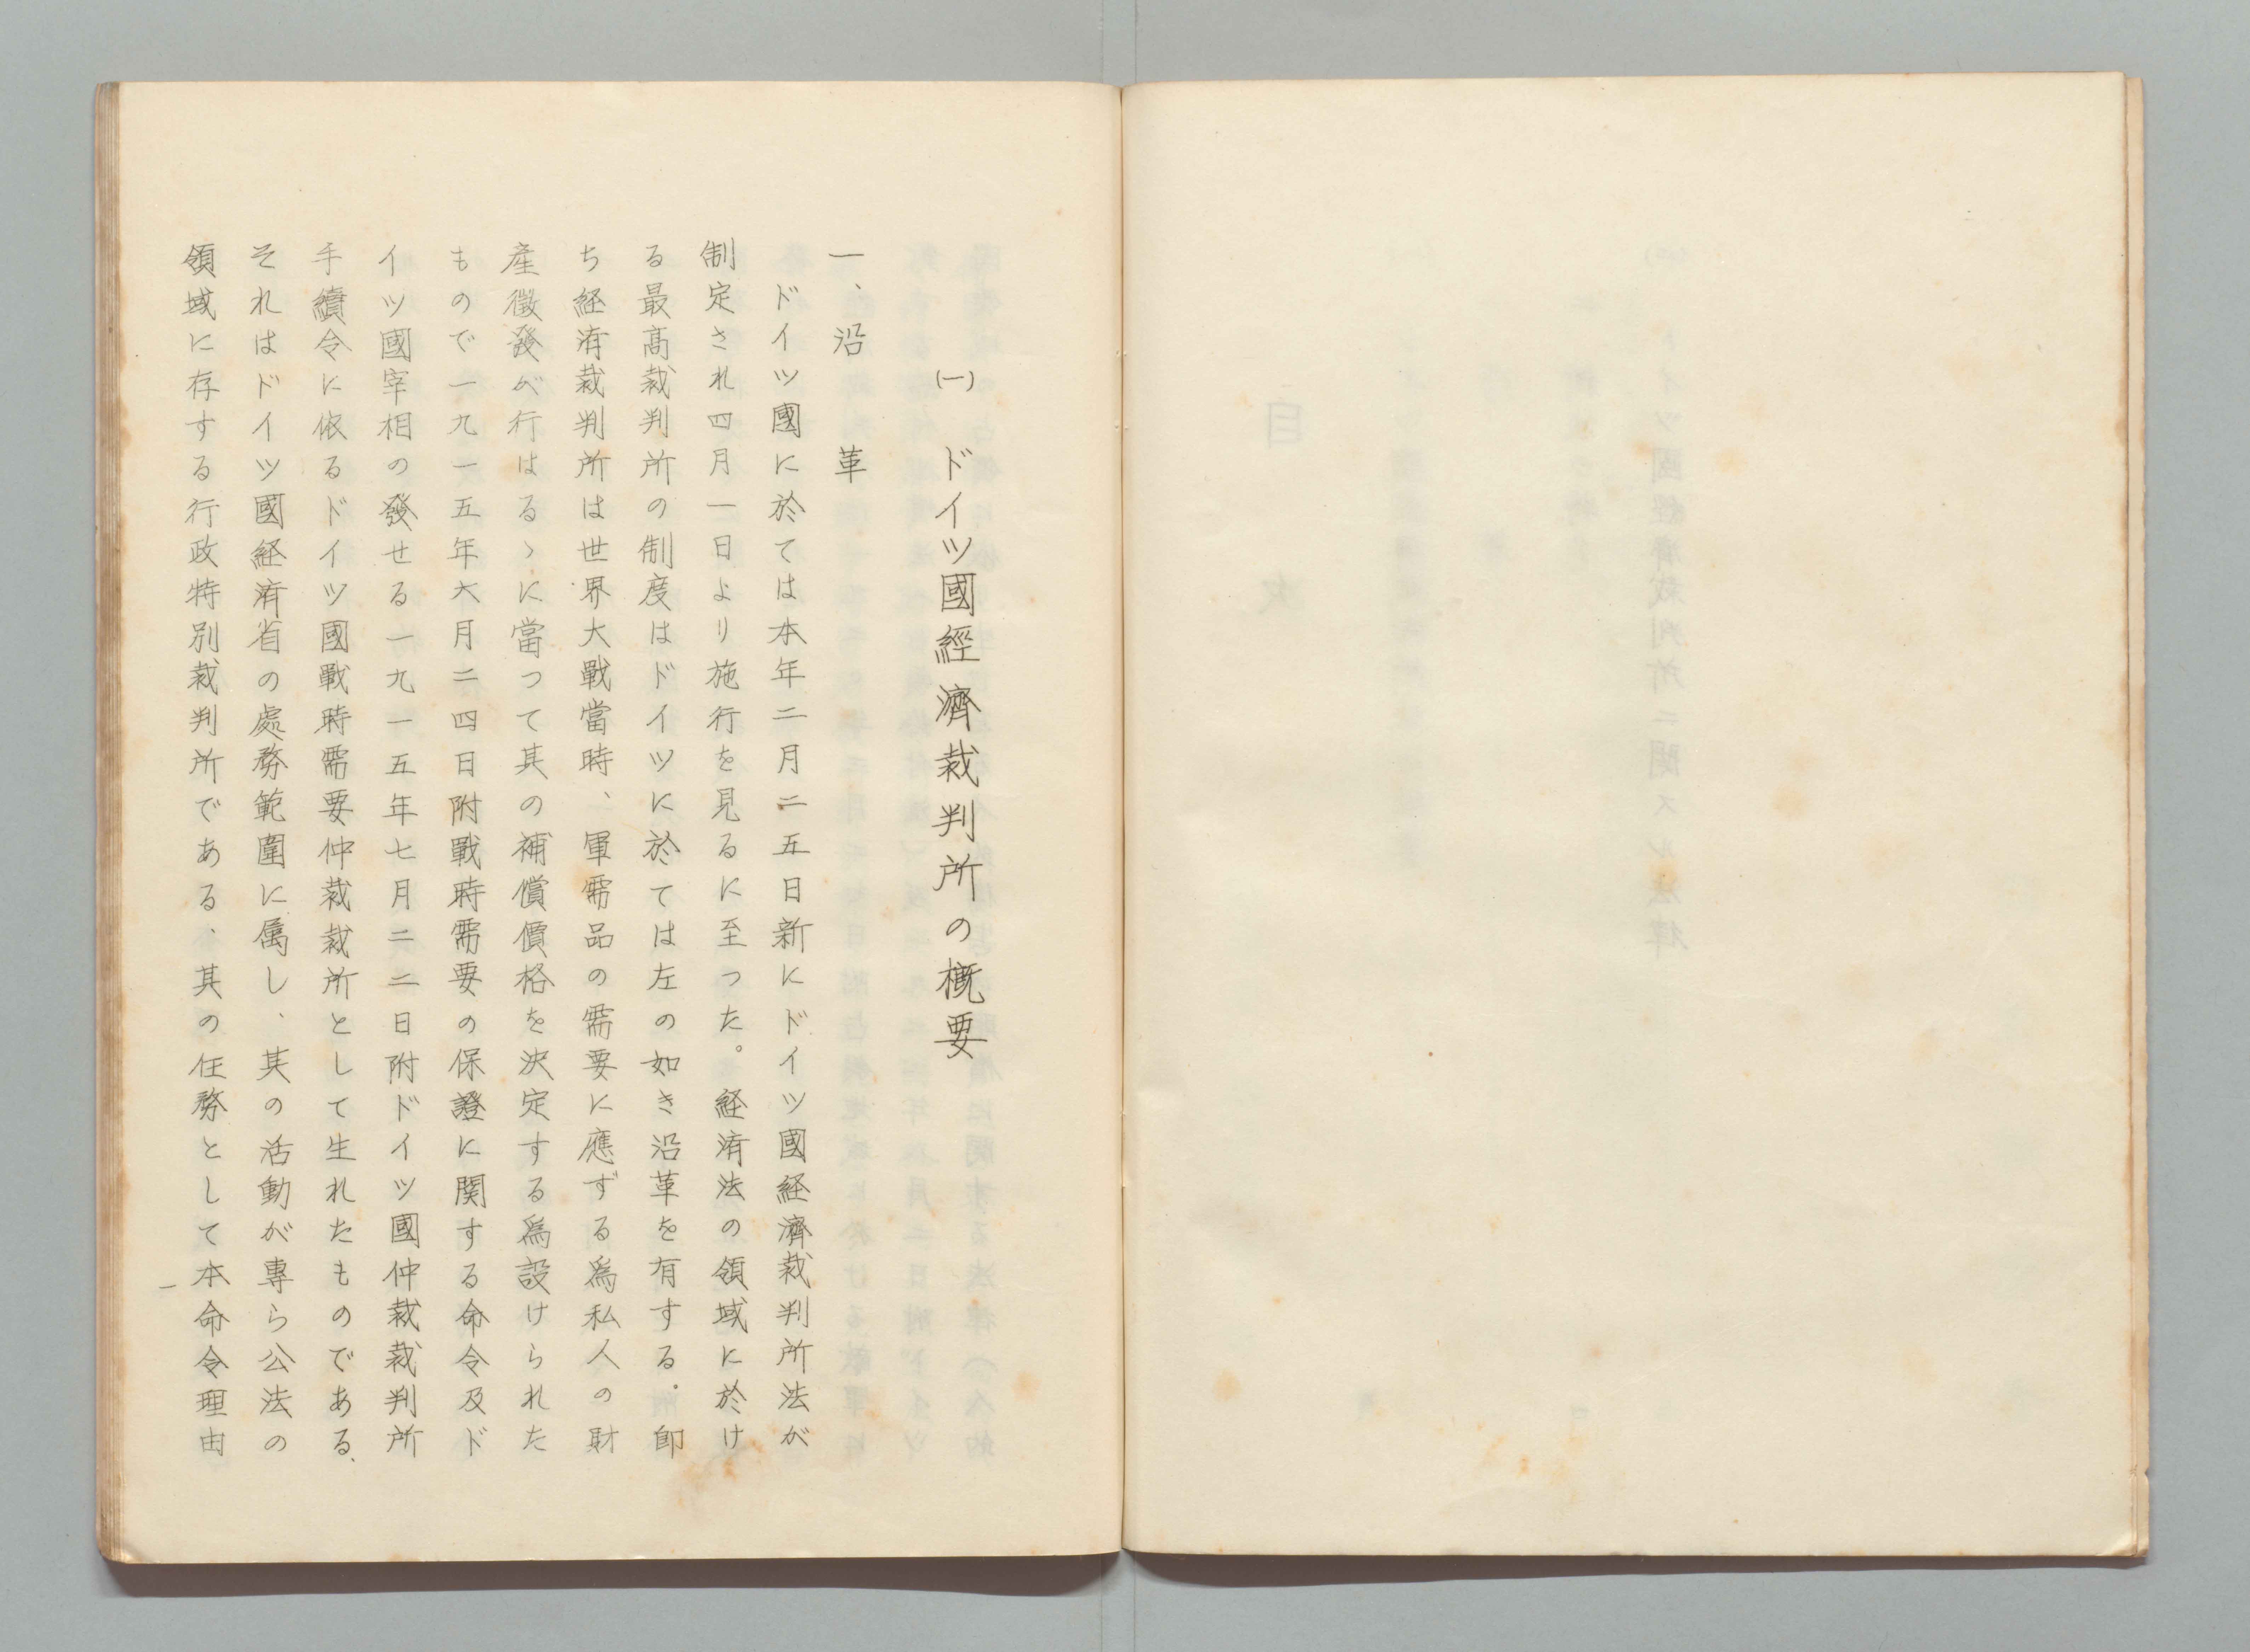 (一)　ドイツ國經濟裁判所の概要
一、沿　革
ドイツ國に於ては本年二月二五日新にドイツ國経濟裁判所法が
制定され四月一日より施行を見るに至つた。経済法の領域に於け
る最高裁判所の制度はドイツに於ては左の如き沿革を有する。即
ち経済裁判所は世界大戰當時、軍需品の需要に應ずる爲私人の財
産徴發が行はるゝに當つて其の補償價格を決定する爲設けられた
もので一九一五年六月二四日附戰時需要の保證に関する命令及ド
イツ國宰相の發せる一九一五年七月二二日附ドイツ國仲裁裁判所
手續令に依るドイツ國戰時需要仲裁裁所として生れたものである、
それはドイツ國経済省の處務範圍に属し、其の活動が專ら公法の
領域に存する行政特別裁判所である、其の任務として本命令理由
一